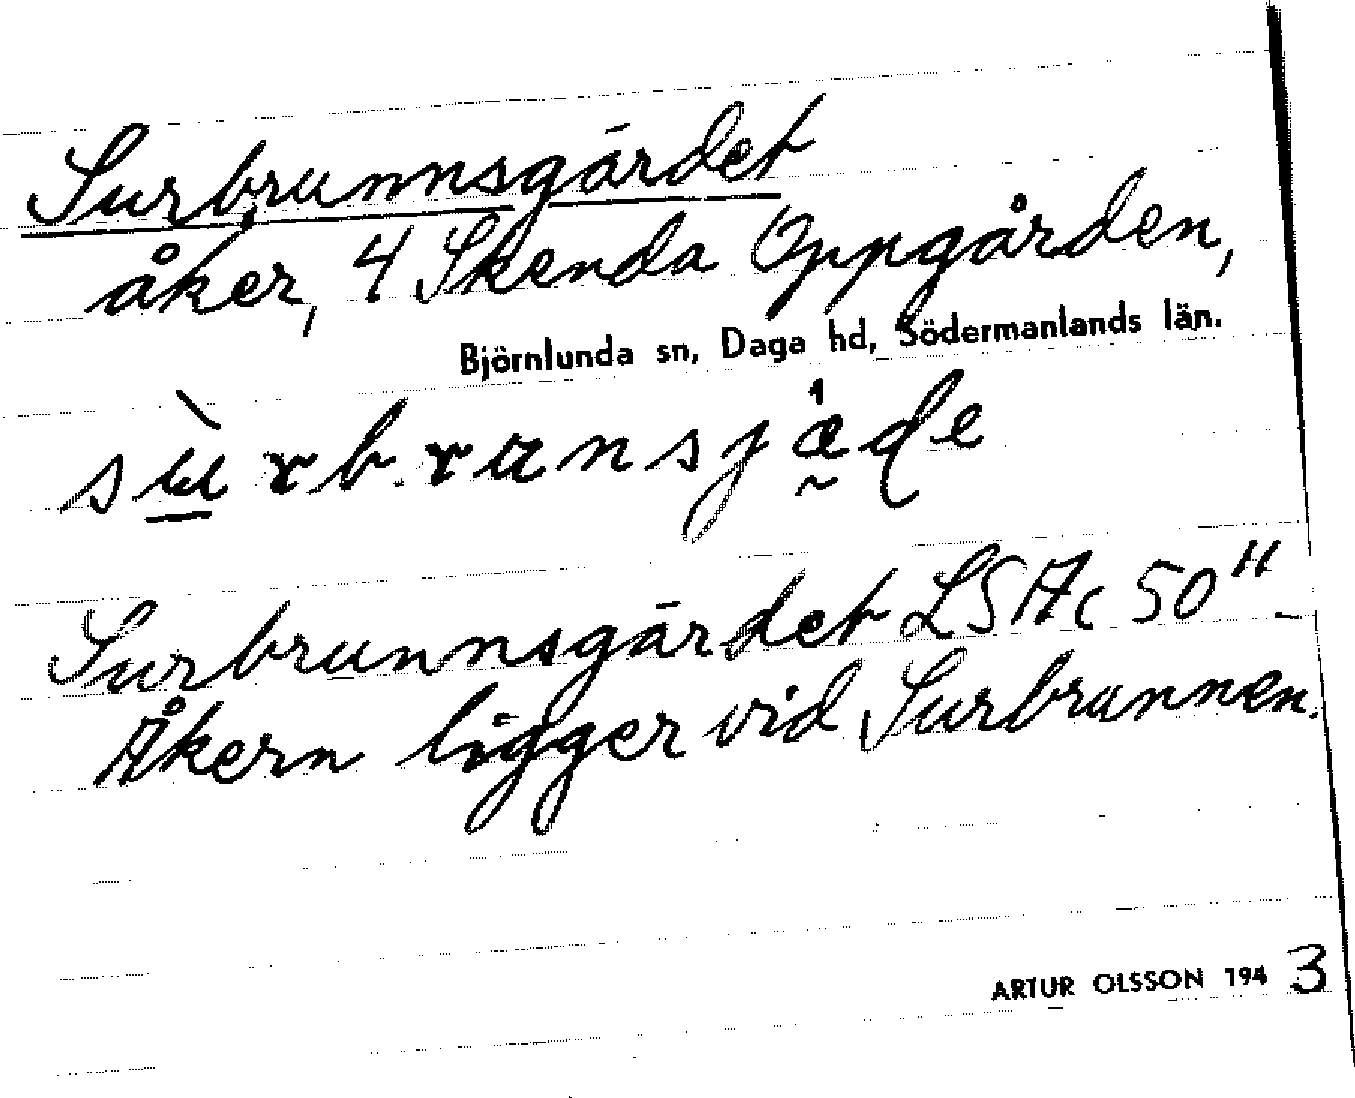 Surbrunnsgärdet
åker, 4 Skenda Oppgården,
Björnlunda sn, Daga hd, Södermanlands län.
Surbrunnsgärdet LSA c 50"
Åkern ligger vid Surbrunnen.
ARTUR OLSSON 1943